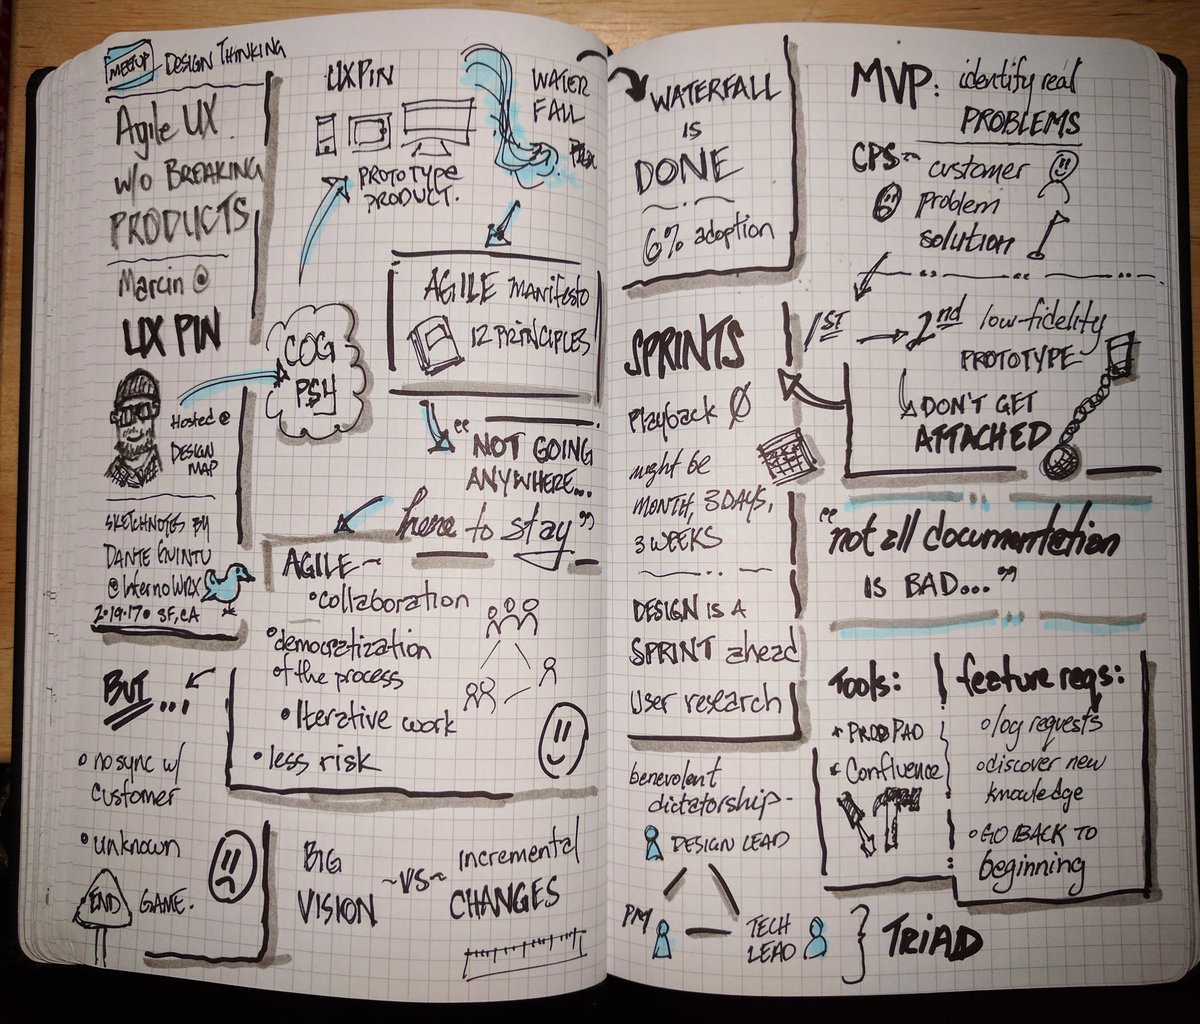 MEETUP - DESIGN THINKING
Agile UX
w/o BREAKING
PRODUCTS
Marcin @
UX PIN
Hosted @
DESIGN
MAP
SKETCHNOTES BY
DANTE GUINTU
@InfernoWRX
2.19.17 • SF, CA
UXPIN
PROTOTYPE
PRODUCT.
COG
PSY
WATER
FALL
AGILE manifesto
12 PRINCIPLES
"NOT GOING
ANYWHERE...
here to stay"
AGILE~
•collaboration
•democratization
of the process
•Iterative work
•less risk
BUT...
• no sync w/
customer
•unknown
END GAME.
BIG
VISION
~VS~
incremental
CHANGES
WATERFALL
IS
DONE
6% adoption
SPRINTS
Playback Ø
might be
MONTH, 3 DAYS,
3 WEEKS
DESIGN IS A
SPRINT ahead
User research
benevolent
dictatorship-
DESIGN LEAD
PM
TECH
LEAD
} TRIAD
MVP: identify real
PROBLEMS
CPS~ customer
problem
solution
1ST
2nd low-fidelity
PROTOTYPE
DON'T GET
ATTACHED
"not all documentation
IS BAD..."
Tools:
PRODPAD
Confluence
feature reqs:
•log requests
•discover new
knowledge
•GO BACK TO
beginning